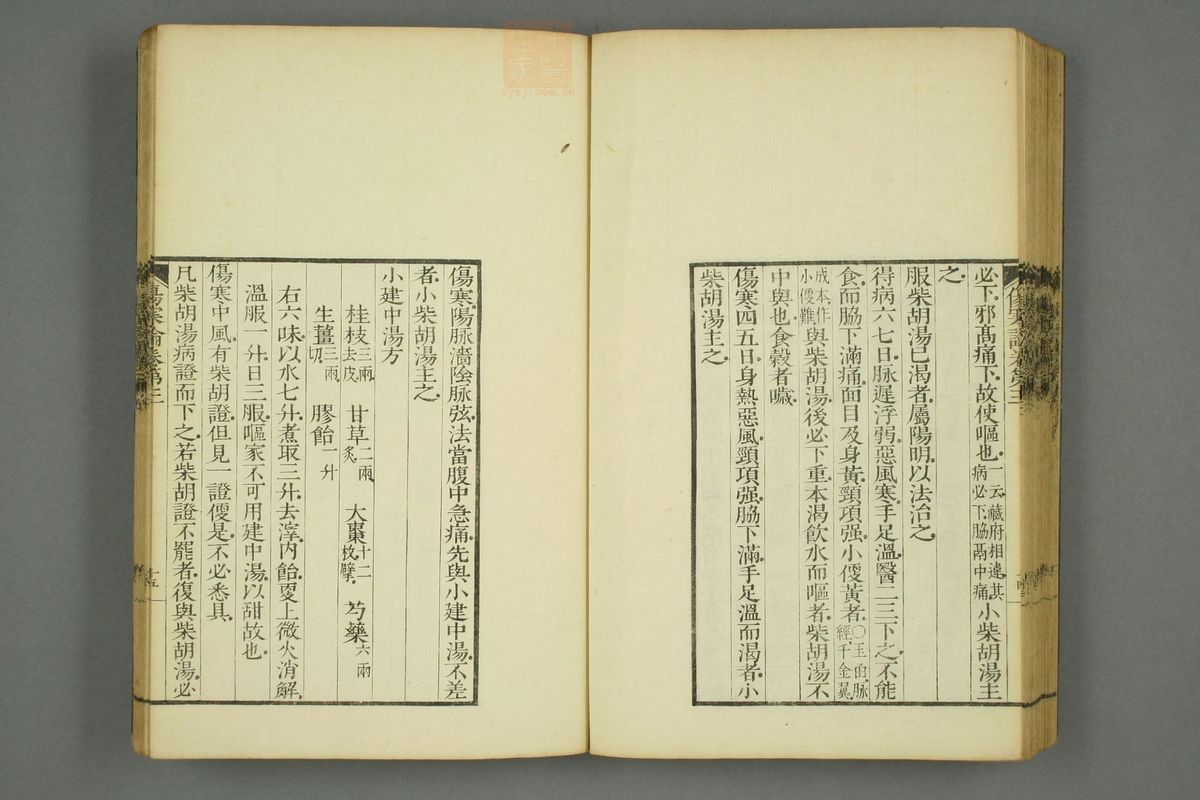 必下.邪髙痛下.故使嘔也.一云藏府相違.其病必下.脇鬲中痛.小柴胡湯主
之.
服柴胡湯巳.渴者.屬陽明.以法治之.
得病六七日.脉遲浮弱.惡風寒.手足溫.醫二三下之.不能
食.而脇下滿痛.面目及身黃.頸項强.小便黃者.〇玉函.脉經.千金翼.
成本.作小便難.與柴胡湯.後必下重.本渴飲水而嘔者.柴胡湯不
中與也.食穀者噦.
傷寒四五日.身熱惡風.頸項强.脇下滿.手足溫而渴者.小
柴胡湯主之.
傷寒論卷第三
傷寒.陽脉濇.陰脉弦.法當腹中急痛.先與小建中湯.不差
者.小柴胡湯主之.
小建中湯方
桂枝三兩.去皮 甘草二兩.炙 大棗十二枚.擘. 芍藥六兩
生薑三兩.切 膠飴一升
右六味.以水七升.煮取三升.去滓.內飴.更上微火消解.
溫服一升.日三服.嘔家不可用建中湯.以甜故也.
傷寒中風.有柴胡證.但見一證便是.不必悉具.
凡柴胡湯病證而下之.若柴胡證不罷者.復與柴胡湯.必
傷寒論卷第三
十五